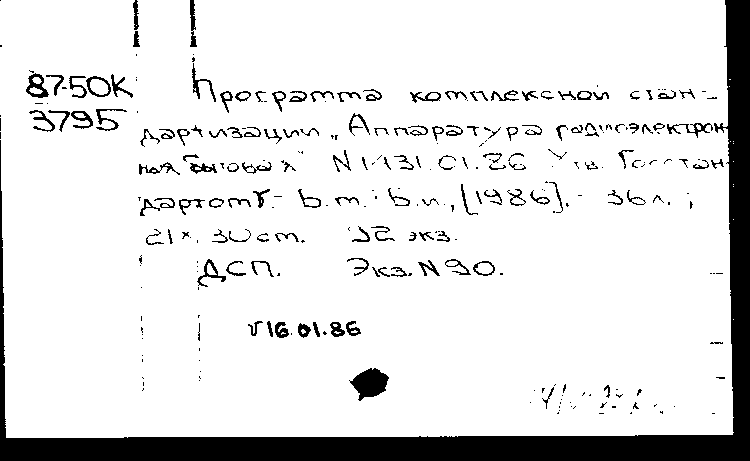 87-50К
3795
Программа комплексной стан-
дартизации „Аппаратура радиоэлектрон-
ная бытовая" N 1-131.01.86 Утв. Госстан-
дартом - Б.м.: Б.и., [1986]. - 36 л. ;
21 х 30 cm. 92 экз.
ДСП. Экз. N 90.
16.01.86